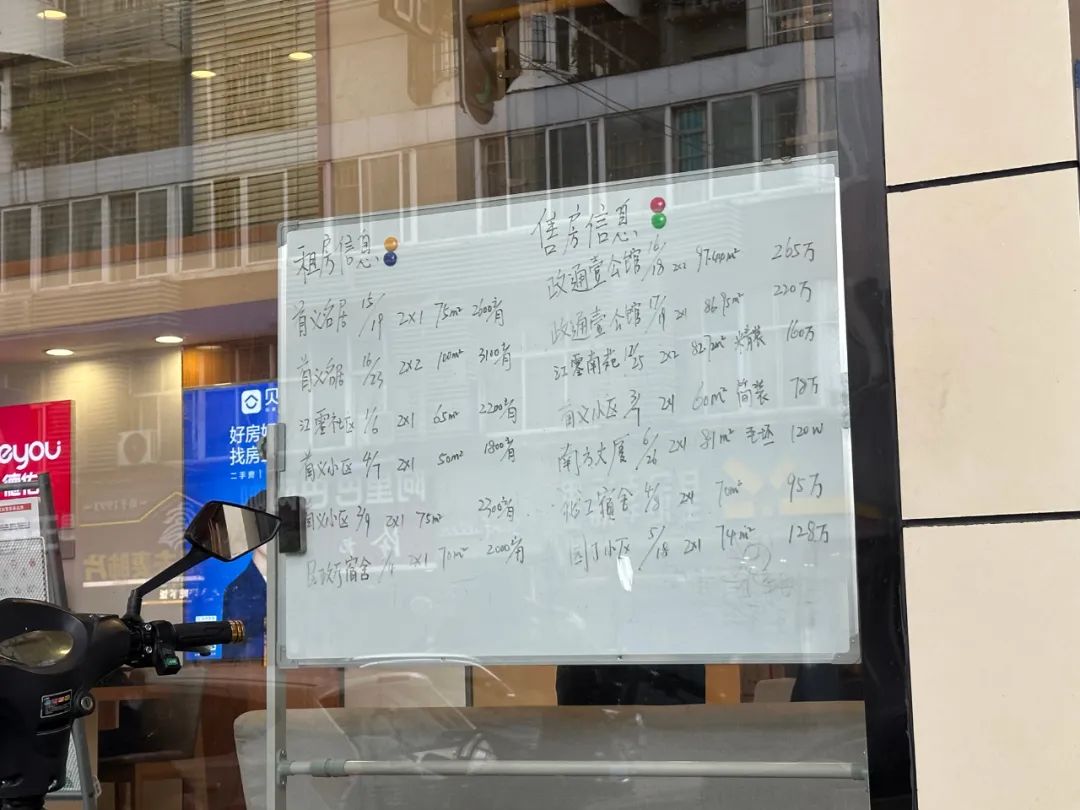 租房信息
首义名居 15/19 2×1 75m² 2600/月
首义名居 16/23 2×2 100m² 3100/月
江云社区 1/6 2×1 65m² 2200/月
首义小区 4/7 2×1 50m² 1800/月
首义小区 2/9 2×1 75m² 2300/月
民政厅宿舍 2×1 70m² 2000/月
售房信息
政通壹公馆 16/18 2×2 97.44m² 265万
政通壹公馆 17/19 2×1 86.95m² 220万
南苑 12/25 2×2 82.72m² 精装 160万
首义小区 2×1 60m² 简装 78万
南方大厦 6/26 2×1 81m² 毛坯 120W
宿舍 4/8 2×1 70m² 95万
园丁小区 5/18 2×1 74m² 128万
eyou
德佑
贝
好房
找房
二手房